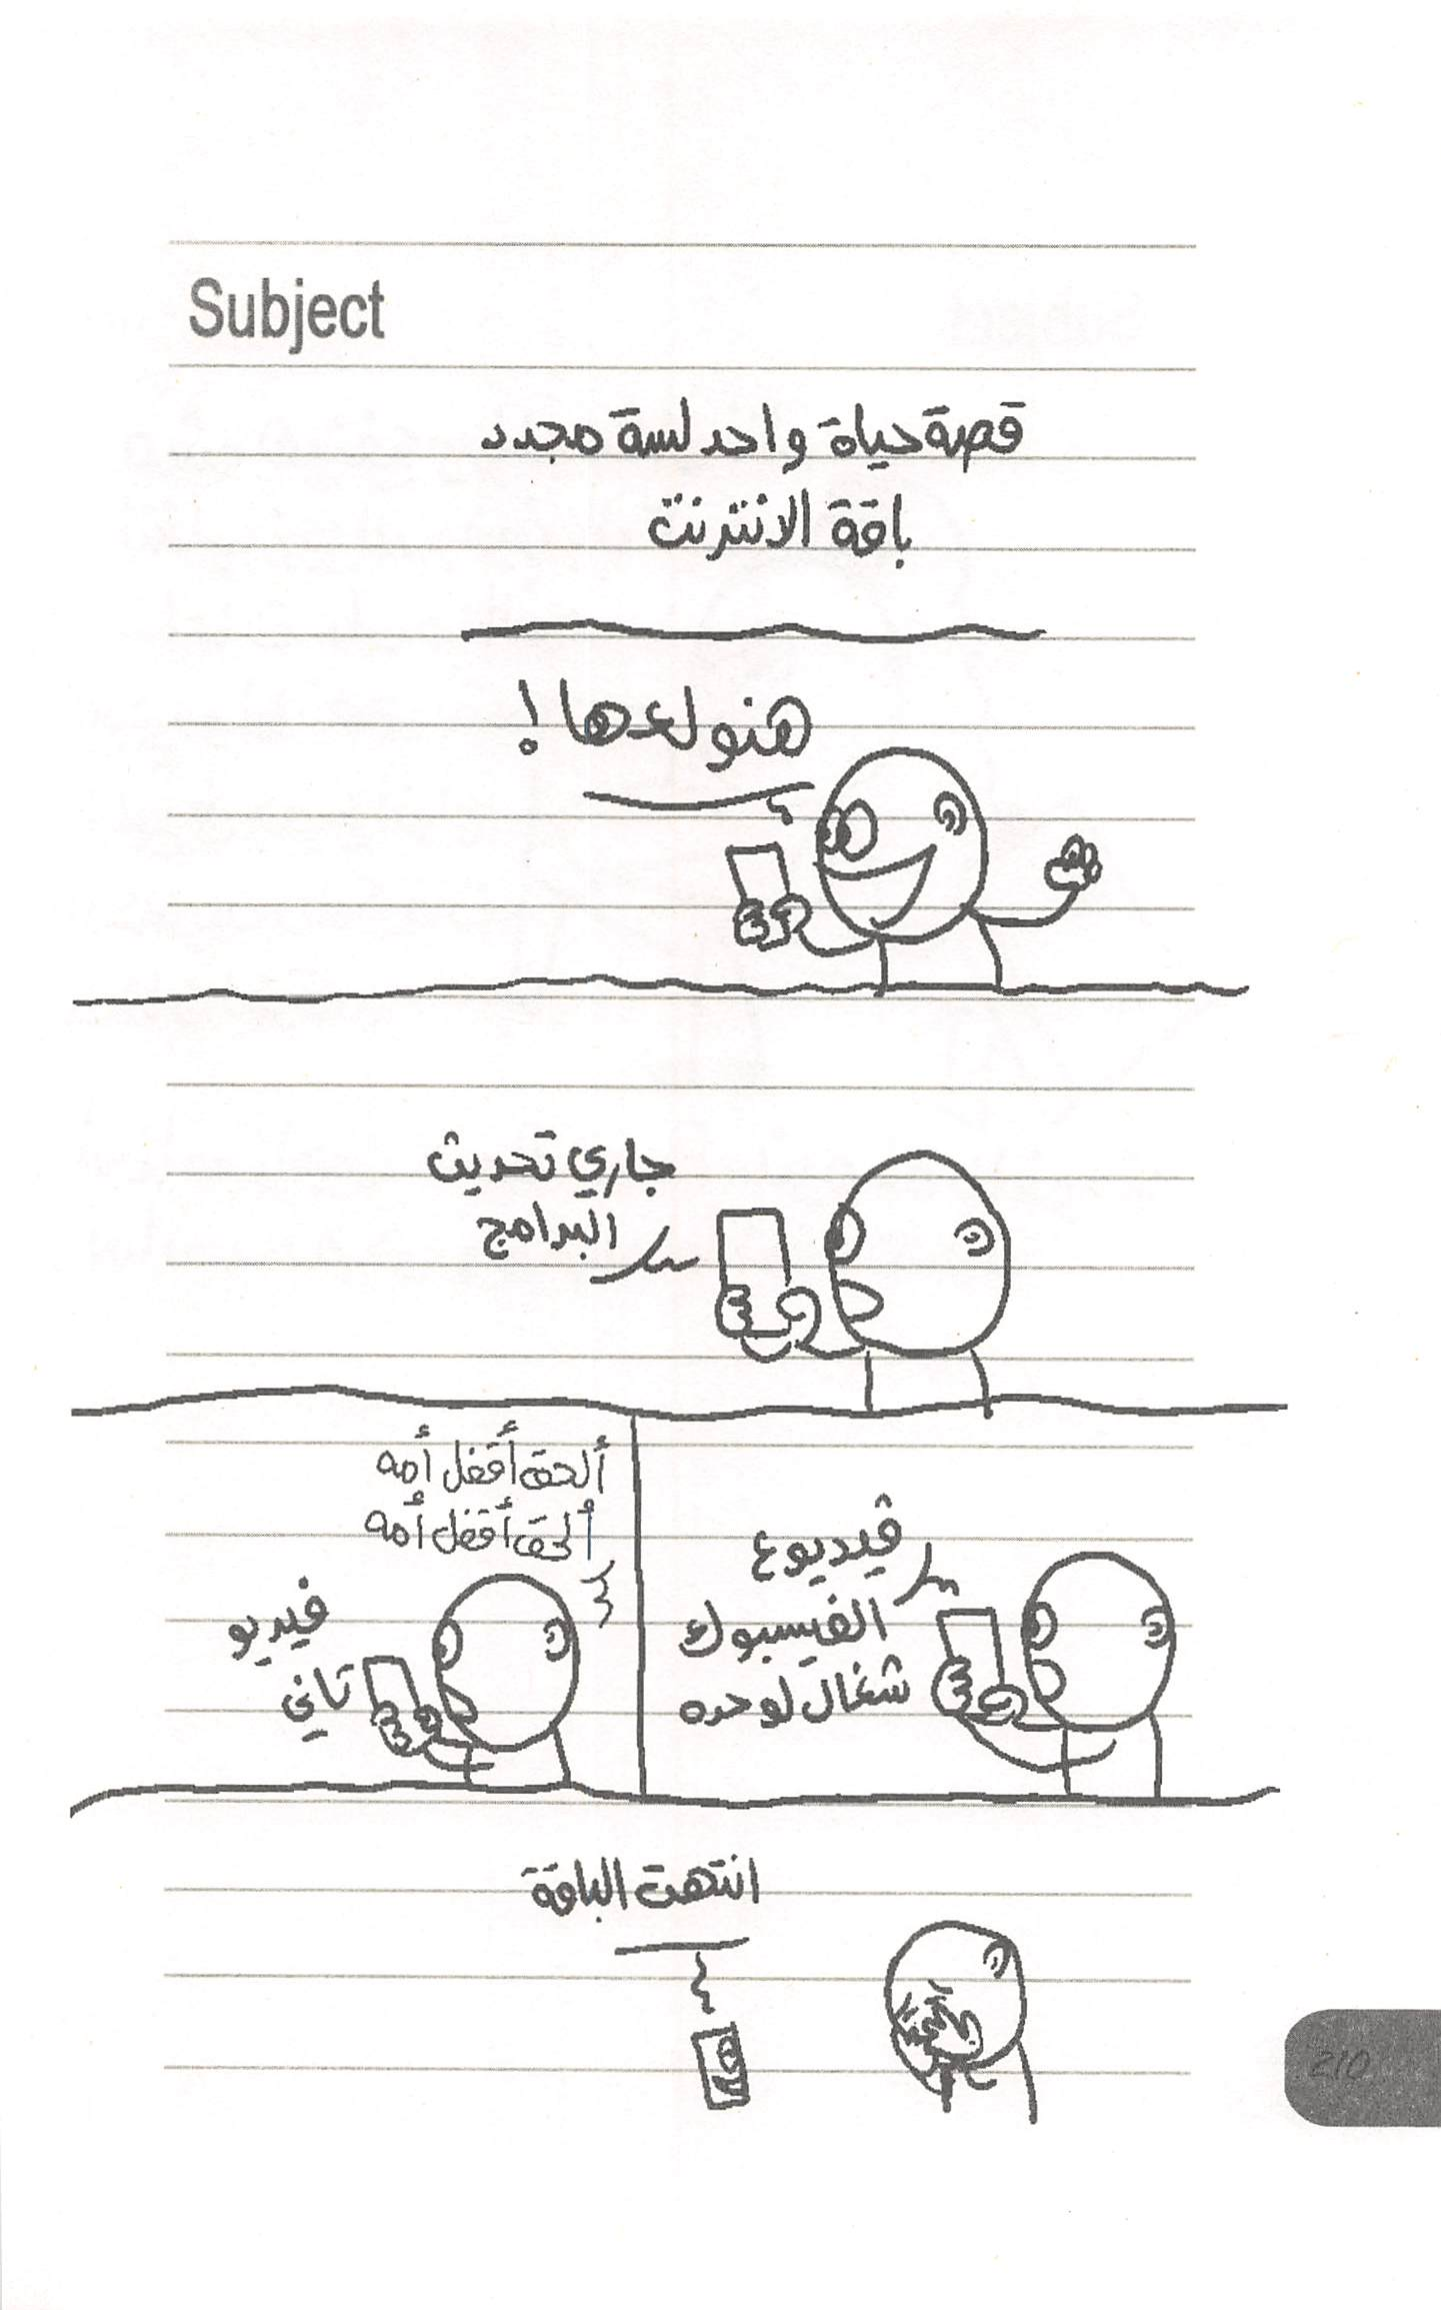 Subject
قصة حياة واحد لسة مجدد
باقة الانترنت
هنولعها!
جاري تحديث
البرامج
ڤيديو ع
الفيسبوك
شغال لوحده
ألحق أقفل أمه
ألحق أقفل أمه
فيديو
تاني
انتهت الباقة
210